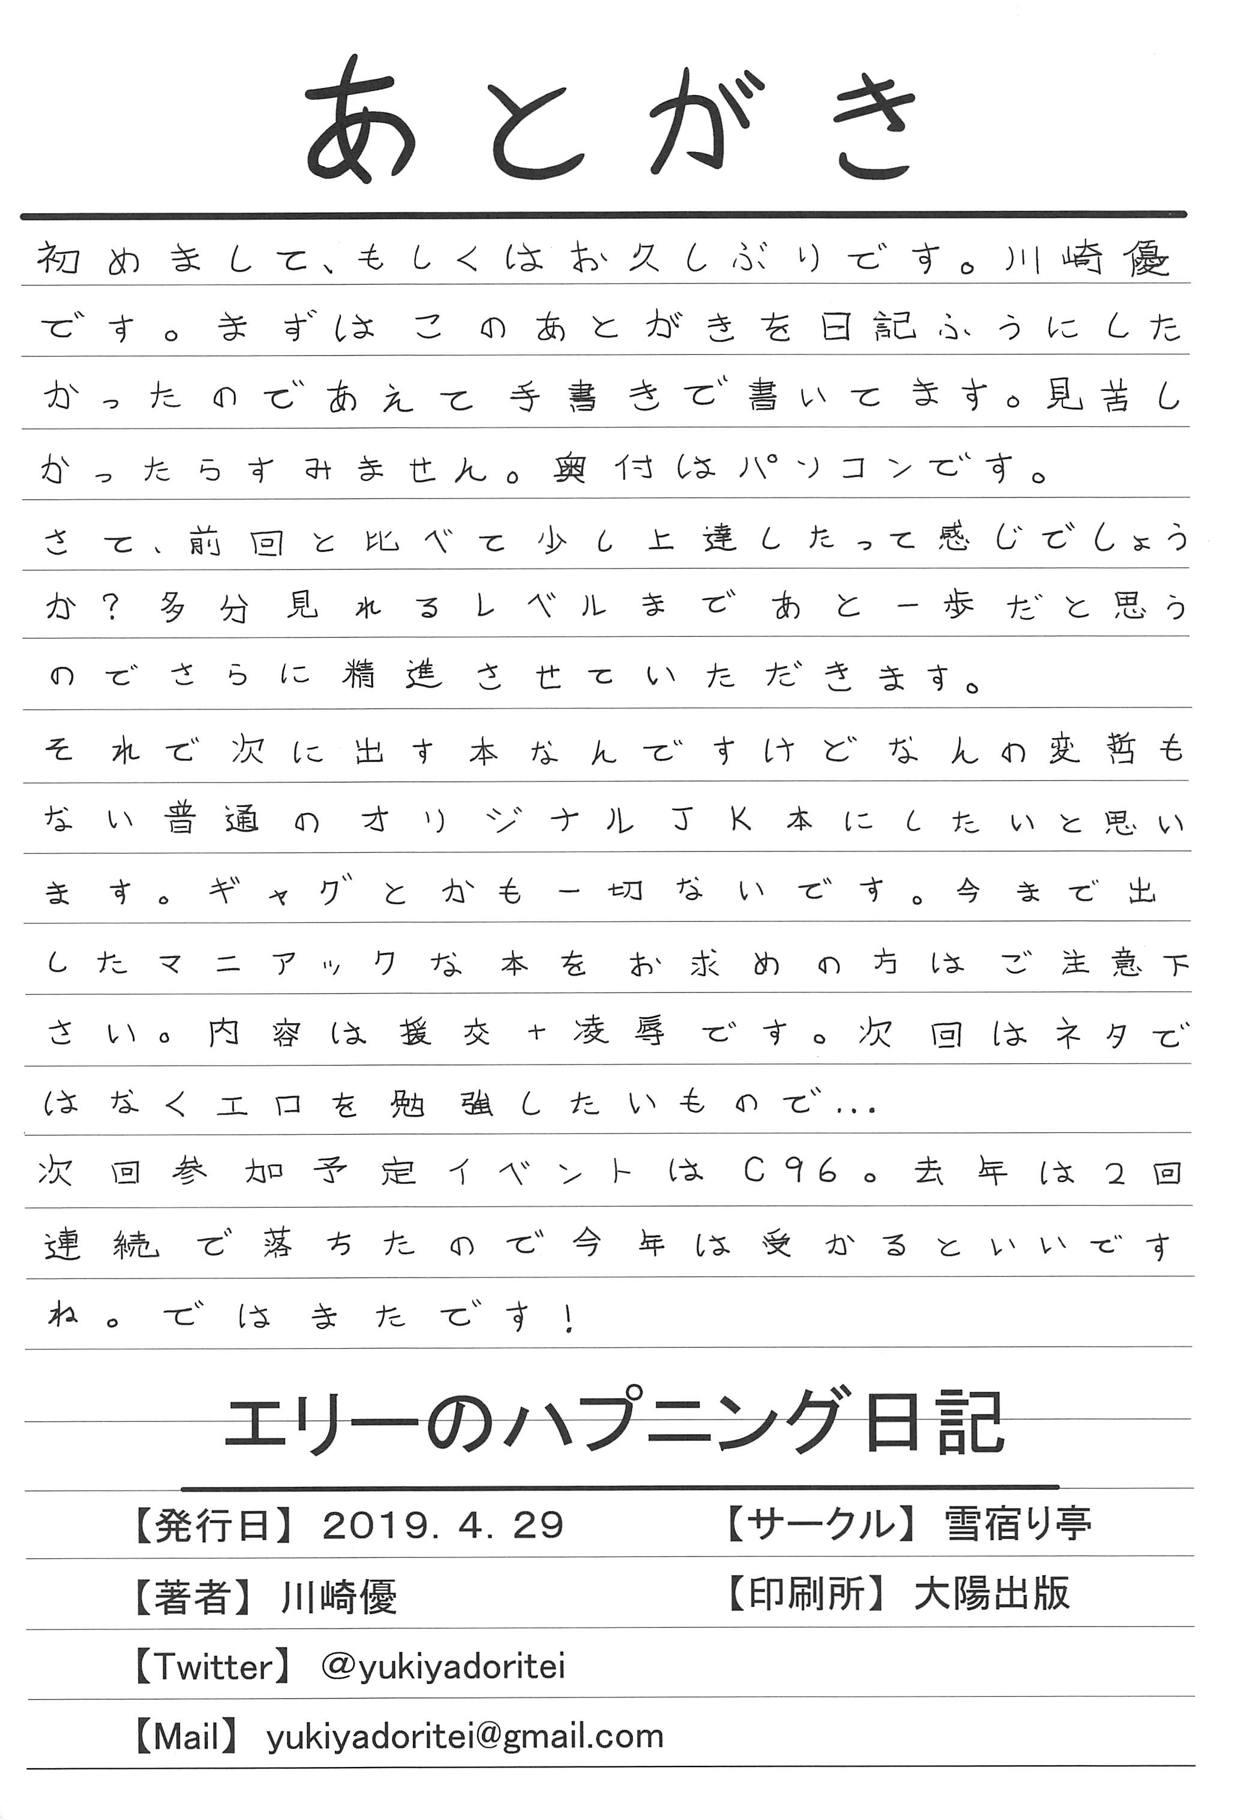 あとがき
初めまして、もしくはお久しぶりです。川崎優
です。まずはこのあとがきを日記ふうにした
かったのであえて手書きで書いてます。見苦し
かったらすみません。奥付はパソコンです。
さて、前回と比べて少し上達したって感じでしょう
か?多分見れるレベルまであと一歩だと思う
のでさらに精進させていただきます。
それで次に出す本なんですけどなんの変哲も
ない普通のオリジナルJK本にしたいと思い
ます。ギャグとかも一切ないです。今まで出
したマニアックな本をお求めの方はご注意下
さい。内容は援交+凌辱です。次回はネタで
はなくエロを勉強したいもので…
次回参加予定イベントはC96。去年は2回
連続で落ちたので今年は受かるといいです
ね。ではまたです!
エリーのハプニング日記
【発行日】 2019. 4. 29 【サークル】 雪宿り亭
【著者】 川崎優 【印刷所】 大陽出版
【Twitter】 @yukiyadoritei
【Mail】 yukiyadoritei@gmail.com